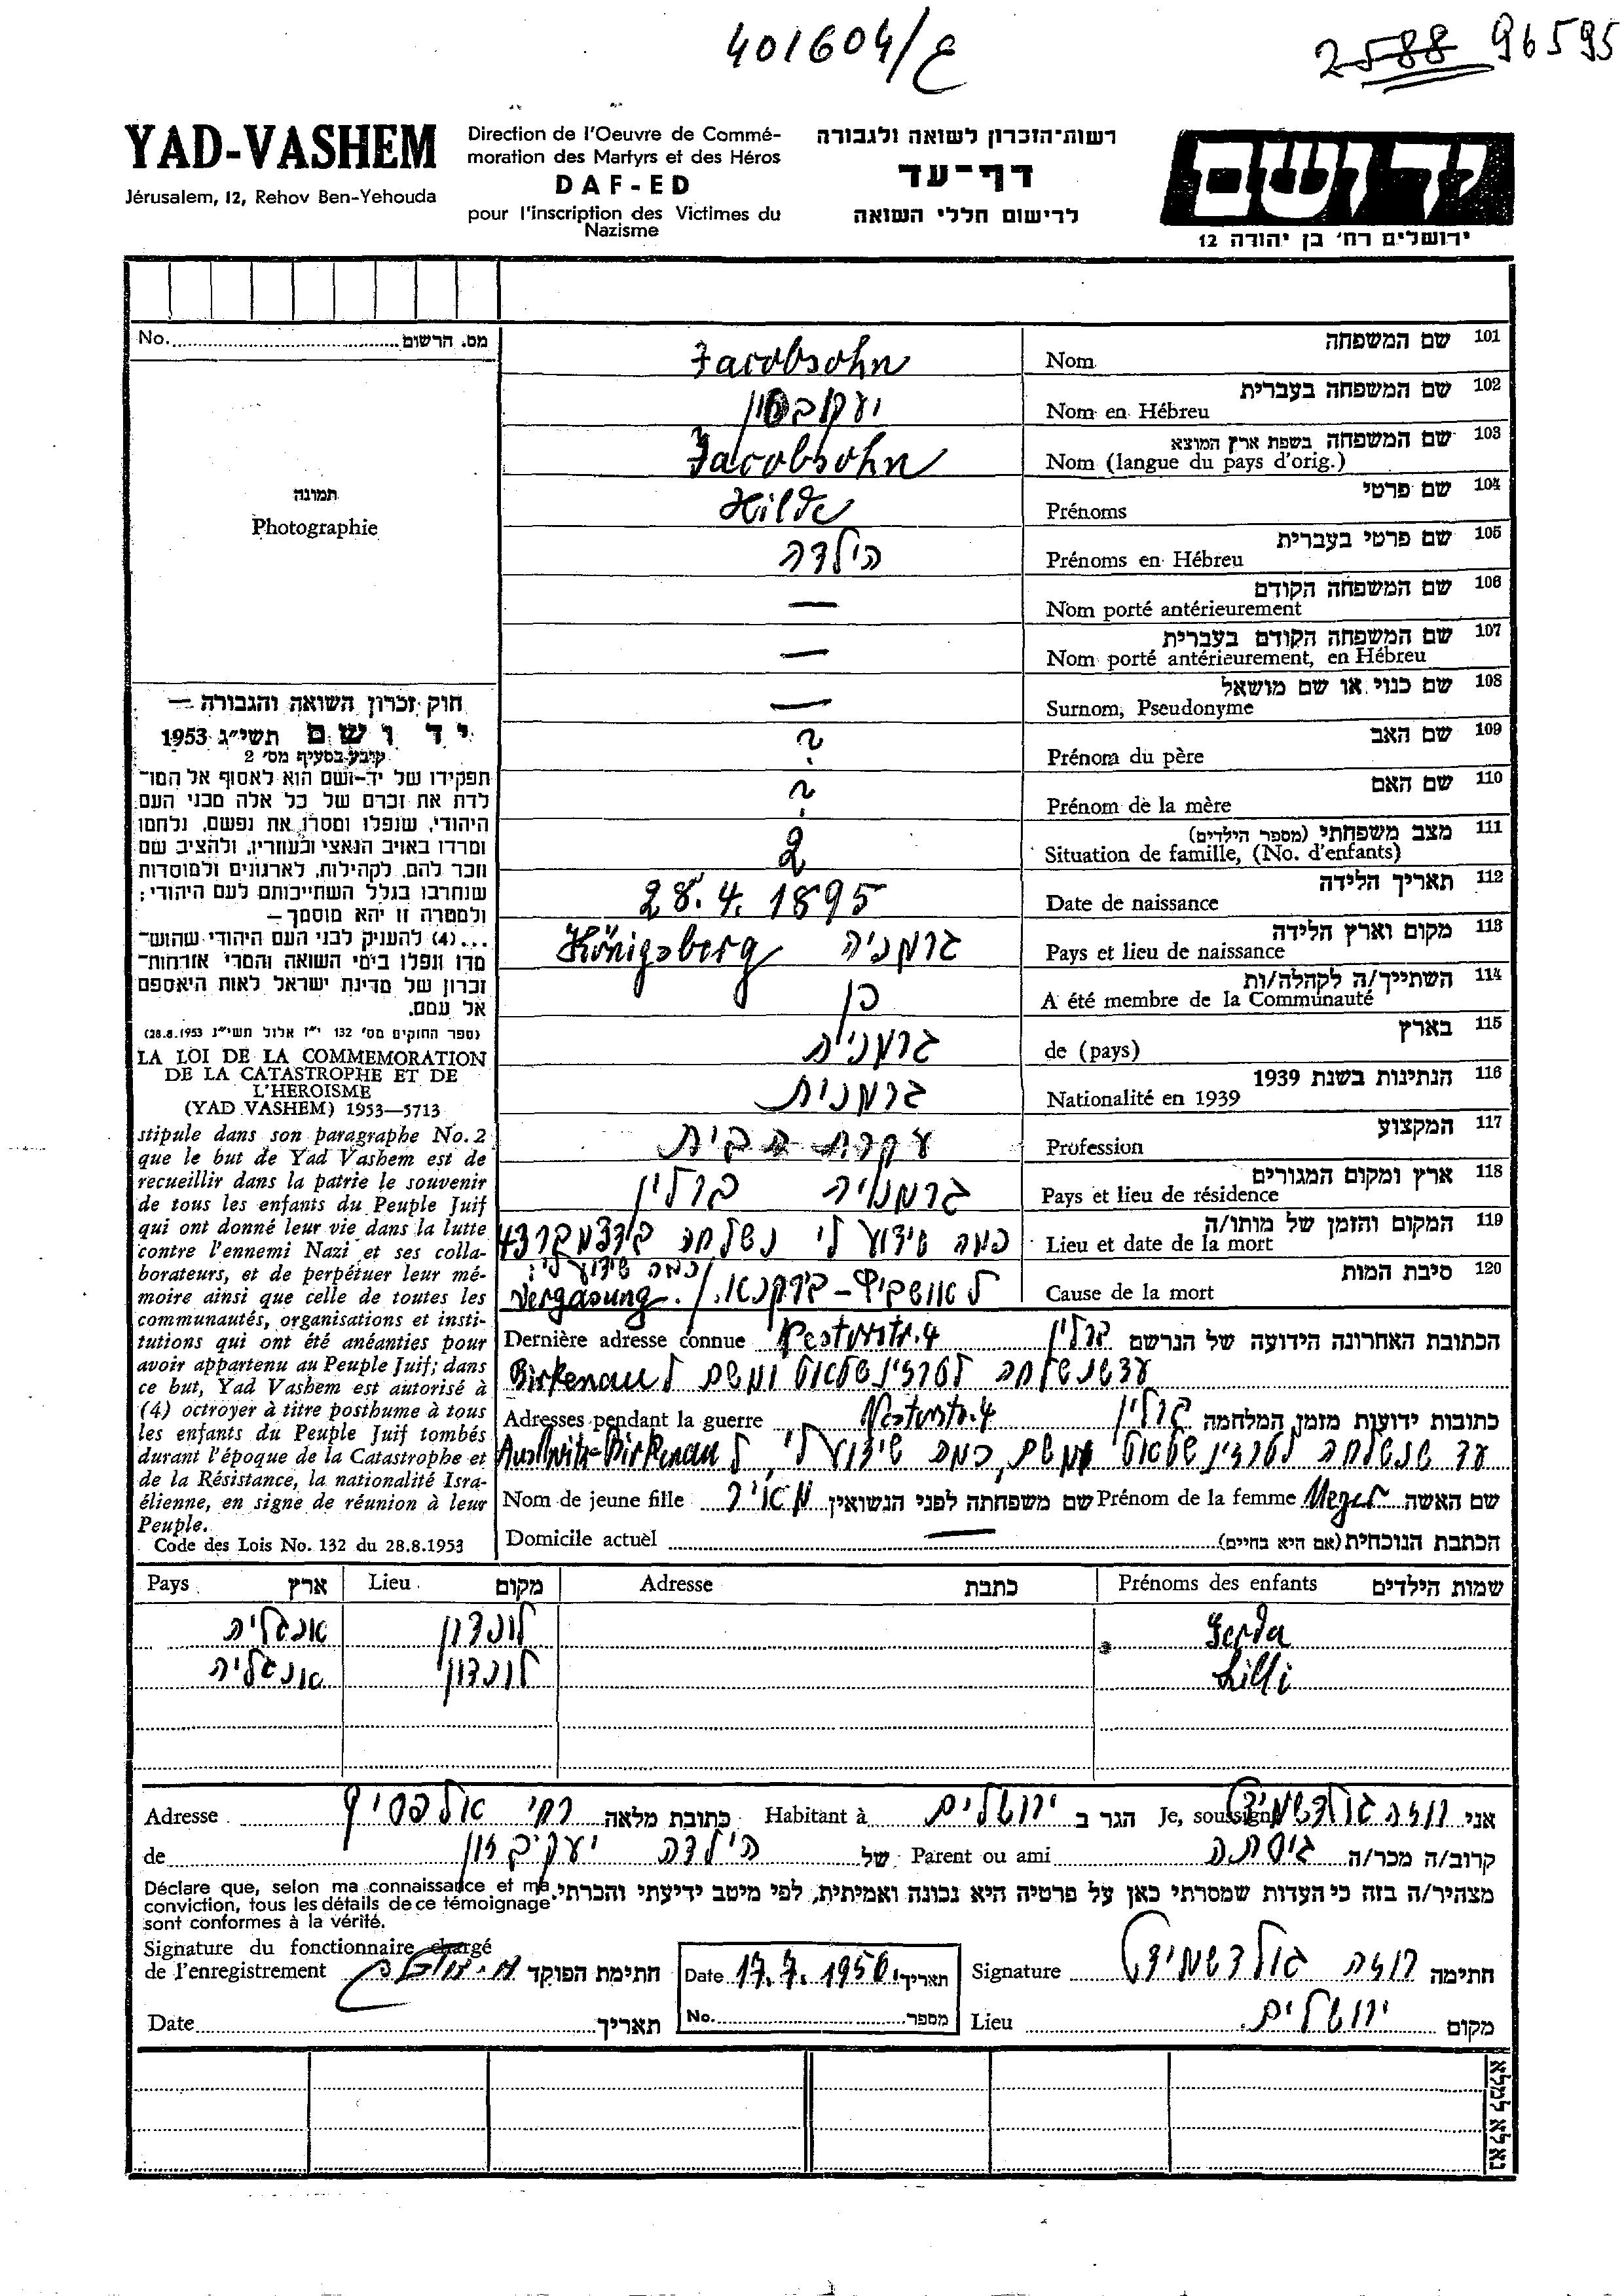 401604/ع
2588 96595
YAD-VASHEM
Jérusalem, 12, Rehov Ben-Yehouda
Direction de l'Oeuvre de Commé-
moration des Martyrs et des Héros
DAF-ED
pour l'inscription des Victimes du
Nazisme
רשות־הזכרון לשואה ולגבורה
דף־עד
לרישום חללי השואה
יד ושם
ירושלים רח' בן יהודה 12
No. מס. הרשום
תמונה
Photographie
חוק זכרון השואה והגבורה —
יד ושם תשי״ג 1953
קובע בסעיף מס' 2
תפקידו של יד־ושם הוא לאסוף אל המו־
לדת את זכרם של כל אלה מבני העם
היהודי, שנפלו ומסרו את נפשם, נלחמו
ומרדו באויב הנאצי ובעוזריו, ולהציב שם
וזכר להם, לקהילות, לארגונים ולמוסדות
שנחרבו בגלל השתייכותם לעם היהודי;
ולמטרה זו יהא מוסמך —
...(4) להעניק לבני העם היהודי שהוש־
מדו ונפלו בימי השואה והמרי אזרחות־
זכרון של מדינת ישראל לאות היאספם
אל עמם.
(ספר החוקים מס' 132 י״ז אלול תשי״ג 28.8.1953)
LA LOI DE LA COMMEMORATION
DE LA CATASTROPHE ET DE
L'HEROISME
(YAD VASHEM) 1953—5713
stipule dans son paragraphe No. 2
que le but de Yad Vashem est de
recueillir dans la patrie le souvenir
de tous les enfants du Peuple Juif
qui ont donné leur vie dans la lutte
contre l'ennemi Nazi et ses colla-
borateurs, et de perpétuer leur mé-
moire ainsi que celle de toutes les
communautés, organisations et insti-
tutions qui ont été anéanties pour
avoir appartenu au Peuple Juif; dans
ce but, Yad Vashem est autorisé à
(4) octroyer à titre posthume à tous
les enfants du Peuple Juif tombés
durant l'époque de la Catastrophe et
de la Résistance, la nationalité Isra-
élienne, en signe de réunion à leur
Peuple.
Code des Lois No. 132 du 28.8.1953
101 שם המשפחה Nom Jacobsohn
102 שם המשפחה בעברית Nom en Hébreu יעקבסון
103 שם המשפחה בשפת ארץ המוצא Nom (langue du pays d'orig.) Jacobsohn
104 שם פרטי Prénoms Hilde
105 שם פרטי בעברית Prénoms en Hébreu הילדה
106 שם המשפחה הקודם Nom porté antérieurement —
107 שם המשפחה הקודם בעברית Nom porté antérieurement, en Hébreu —
108 שם כנוי או שם מושאל Surnom, Pseudonyme —
109 שם האב Prénom du père ?
110 שם האם Prénom de la mère ?
111 מצב משפחתי (מספר הילדים) Situation de famille, (No. d'enfants) 2
112 תאריך הלידה Date de naissance 28.4.1895
113 מקום וארץ הלידה Pays et lieu de naissance גרמניה Königsberg
114 השתייך/ה לקהלה/ות A été membre de la Communauté כן
115 בארץ de (pays) גרמניה
116 הנתינות בשנת 1939 Nationalité en 1939 גרמנית
117 המקצוע Profession עקרת הבית
118 ארץ ומקום המגורים Pays et lieu de résidence גרמניה ברלין
119 המקום והזמן של מותו/ה Lieu et date de la mort כמה שידוע לי נשלחה בדצמבר 43
120 סיבת המות Cause de la mort לאושביץ-בירקנאו. / כמה שידוע לי: Vergasung.
הכתובת האחרונה הידועה של הנרשם ברלין Nestorstr. 4 Dernière adresse connue
עד שנשלחה לטרזינשטאט ומשם ל Birkenau
כתובות ידועות מזמן המלחמה ברלין Nestorstr. 4 Adresses pendant la guerre
עד שנשלחה לטרזינשטאט ומשם, כמה שידוע לי, ל Auschwitz-Birkenau
שם האשה Meyer Prénom de la femme שם משפחתה לפני הנשואין מאיר Nom de jeune fille
הכתבת הנוכחית (אם היא בחיים) — Domicile actuel
שמות הילדים Prénoms des enfants כתבת Adresse מקום Lieu ארץ Pays
Gerda לונדון אנגליה
Lilli לונדון אנגליה
אני רוזה גולדשמידט Je, soussigné הגר ב ירושלים Habitant à כתובת מלאה רח' אלפסי Adresse
קרוב/ה מכר/ה גיסתה Parent ou ami של הילדה יעקבסון de
מצהיר/ה בזה כי העדות שמסרתי כאן על פרטיה היא נכונה ואמיתית, לפי מיטב ידיעתי והכרתי.
Déclare que, selon ma connaissance et ma
conviction, tous les détails de ce témoignage
sont conformes à la vérité.
חתימה רוזה גולדשמידט Signature
תאריך 17.7.1956 Date
חתימת הפוקד
Signature du fonctionnaire chargé
de l'enregistrement
מקום ירושלים Lieu
מספר No.
תאריך Date
נא לא למלא